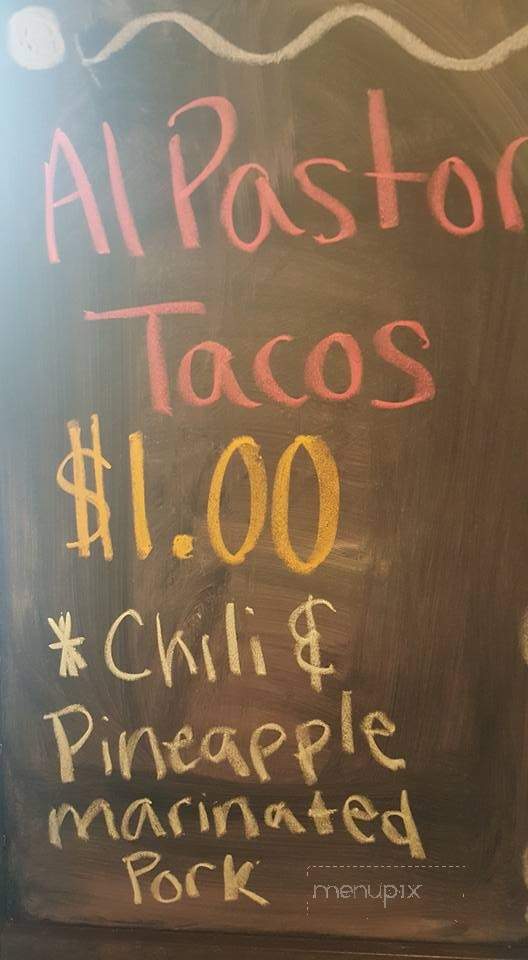 Al Pastor
Tacos
$1.00
*Chili &
Pineapple
marinated
Pork
menupix